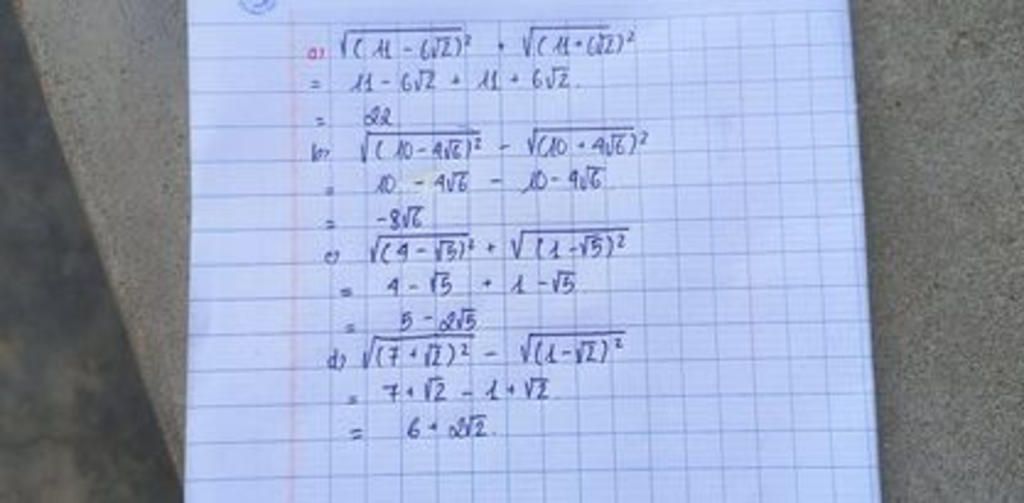 a) √(11 - 6√2)² + √(11 + 6√2)²
= 11 - 6√2 + 11 + 6√2.
= 22
b) √(10 - 4√6)² - √(10 + 4√6)²
= 10 - 4√6 - 10 - 4√6
= -8√6
c) √(4 - √5)² + √(1 - √5)²
= 4 - √5 + 1 - √5
= 5 - 2√5
d) √(7 + √2)² - √(1 - √2)²
= 7 + √2 - 1 + √2
= 6 + 2√2.